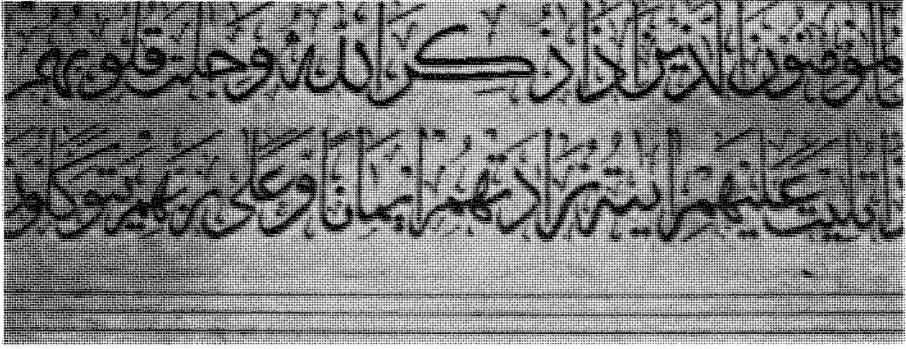 المؤمنون الذين اذا ذكر الله وجلت قلوبهم
ذا تليت عليهم ايته زادتهم ايمانا وعلى ربهم يتوكلو